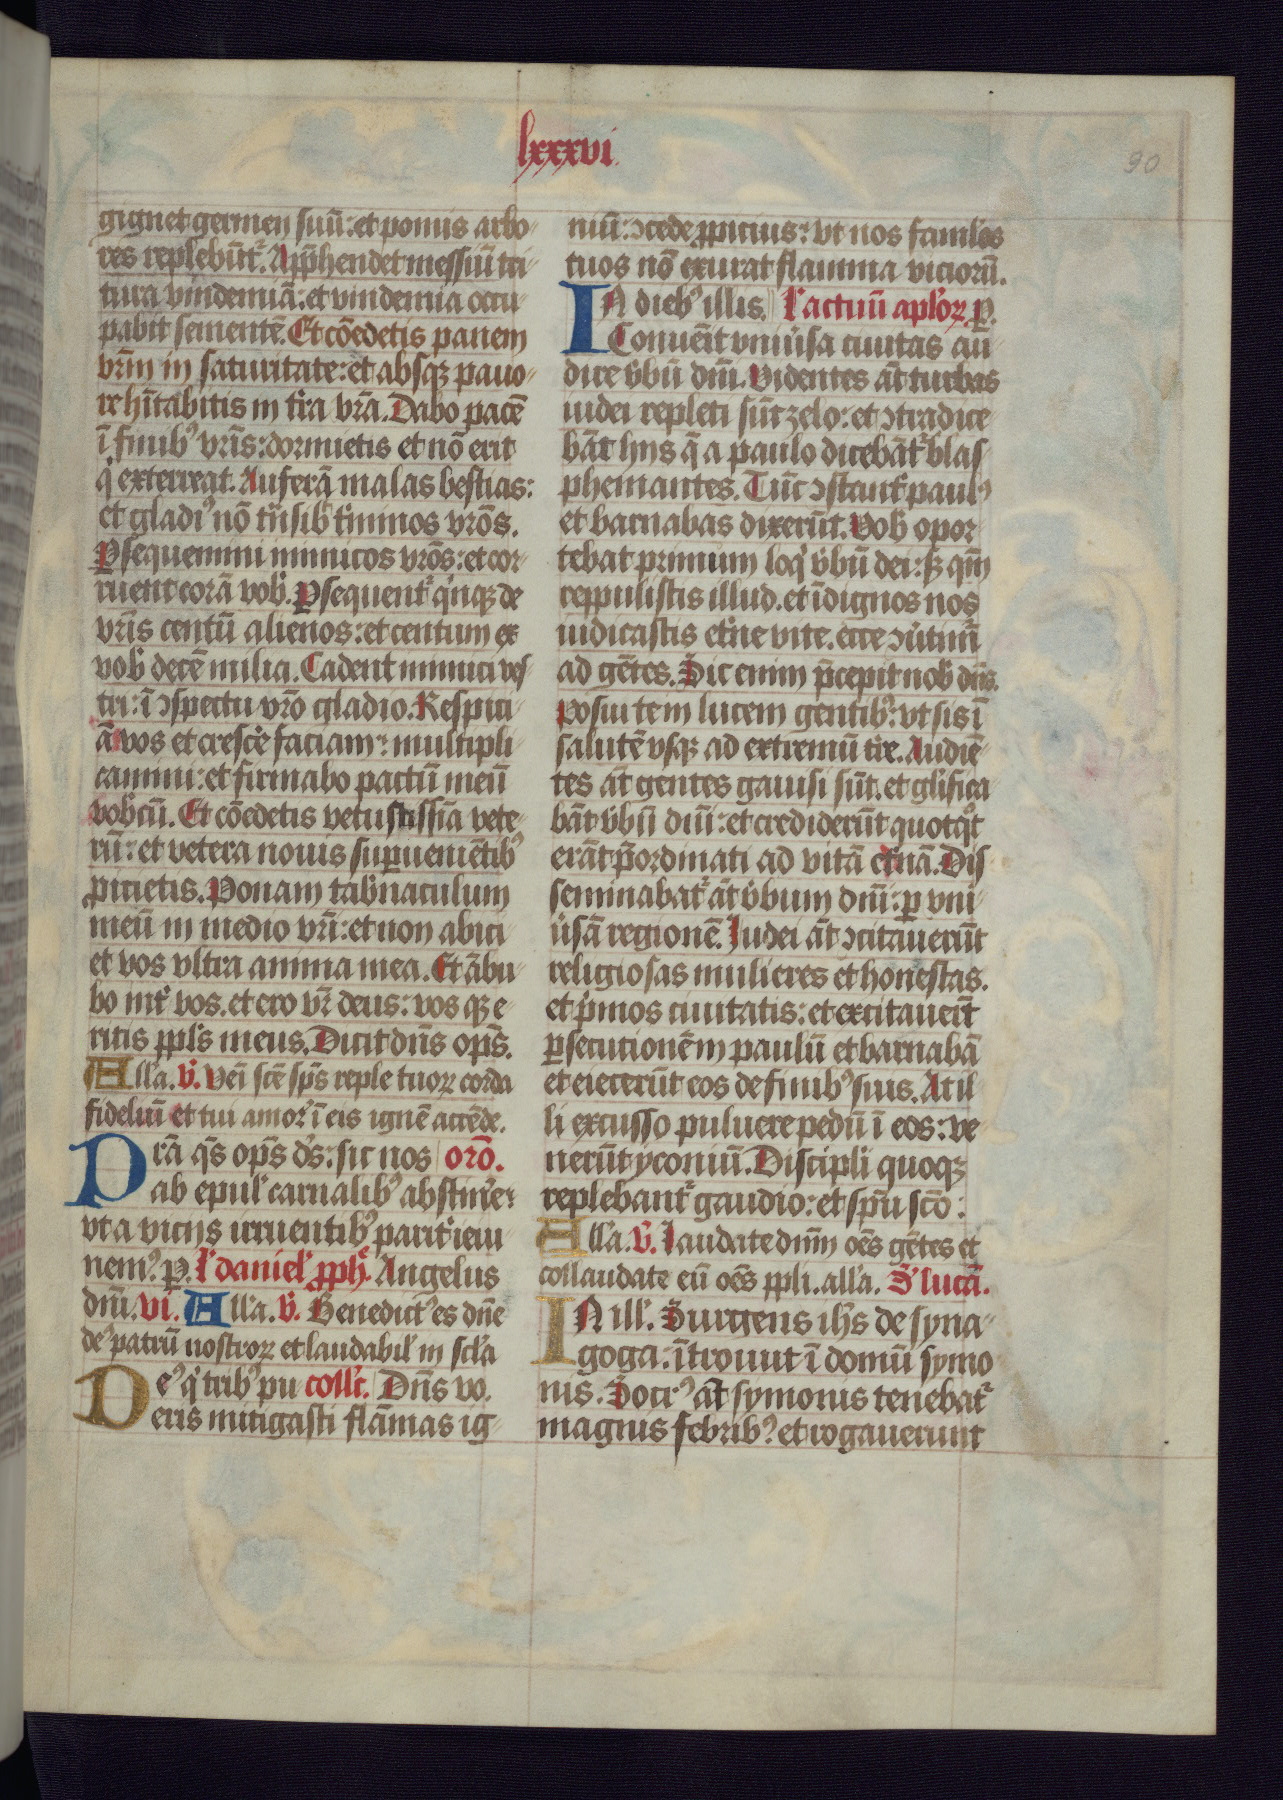 lxxxvi
90
gignet germen suū: et pomis arbo-
res replebūt᷑. App̄hendet messiū tri-
tura vindemiā: et vindemia occu-
pabit sementē. Et cōedetis panem
vr̄m in saturitate: et absqꝫ pauo-
re hītabitis in tr̄ra vr̄a. Dabo pacē
ī finibꝰ vrīs: dormietis et nō erit
qͥ exterreat. Auferā malas bestias:
et gladiꝰ nō trāsibit tr̄minos vrōs.
Ꝑsequemini inimicos vrōs: et cor-
ruent corā vob̄. Ꝑsequent᷑ qͥnqꝫ de
vrīs centū alienos: et centum ex
vob̄ decē milia. Cadent inimici ves-
tri: ī ꝯspectu vrō gladio. Respici-
ā vos et cresc̄e faciam: multipli-
camini: et firmabo pactū meū
vob̄cū. Et cōedetis vetustissīa vete-
rū: et vetera nouis suꝑueniētibꝰ
ꝓicietis. Ponam tab̄naculum
meū in medio vrī: et non abici-
et vos vltra anima mea. Et ābu-
bo int̄ vos. et ero vr̄ deus: vos qꝫ e-
ritis ppl̄s meus. Dicit dn̄s ops̄.
All̄a. v̄. Veī scē sp̄s reple tuoꝝ corda
fideliū et tui amor᷑ ī eis ignē accēde.
Prā qs̄ ops̄ ds̄: sic nos orō.
ab epul᷑ carnalibꝰ abstin̄e:
vt a vicijs irruentibꝰ parit᷑ ieiu-
nemꝰ. ꝑ. l᷑ daniel᷑ ꝓph̄e. Angelus
dn̄i. vi. All̄a. v̄. Benedictꝰ es dn̄e
deꝰ patrū nostroꝝ et laudabil᷑ in scl̄a
Deꝰ qͥ tribꝰ pu coll̄c. Dn̄s vo.
eris mitigasti flāmas ig-
niū: ꝯcede ꝓpicius: vt nos famlōs
tuos nō exurat flamma viciorū.
In diebꝰ illis. l᷑ actuū apl̄oꝝ ꝑ.
Conueīt vniūsa ciuitas au-
dire v̄bū dn̄i. Videntes āt turbas
iudei repleti sūt zelo: et ꝯtradice-
bāt hijs q̄ a paulo dicebāt᷑ blas-
phemantes. Tūc ꝯstant᷑ paulꝰ
et barnabas dixerūt. Vob̄ opor-
tebat primum loqͥ v̄bū dei: sꝫ qm̄
reppulistis illud. et īdignos nos
iudicastis et̄ne vite. ecce ꝯūtim᷑
ad gētes. Sic enim p̄cepit nob̄ dn̄s.
Posui te in lucem gentibꝰ: vt sis ī
salutē vsqꝫ ad extremū tr̄re. Audiē-
tes āt gentes gauisi sūt. et gl̄ifica-
bāt v̄bū dn̄i: et crediderūt quotqͦt
erāt p̄ordinati ad vitā et̄nā. Dis-
seminabat᷑ āt v̄bum dn̄i: ꝑ vni-
ūsā regionē. Iudei āt ꝯcitauerūt
religiosas mulieres et honestas.
et pͥmos ciuitatis: et excitauerūt
ꝑsecutionē in paulū et barnabā
et eiecerūt eos de finibꝰ suis. At il-
li excusso puluere pedū ī eos: ve-
nerūt yconiū. Discipli quoqꝫ
replebant᷑ gaudio: et spū scō:
All̄a. v̄. Laudate dn̄m oēs gētes et
collaudate eū oēs ppli. all̄a. S᷑ lucā.
In ill᷑. Surgens ih̄s de syna-
goga. ītrouit ī domū symo-
nis. Socrꝰ āt symonis tenebat᷑
magnis febribꝰ. et rogauerunt